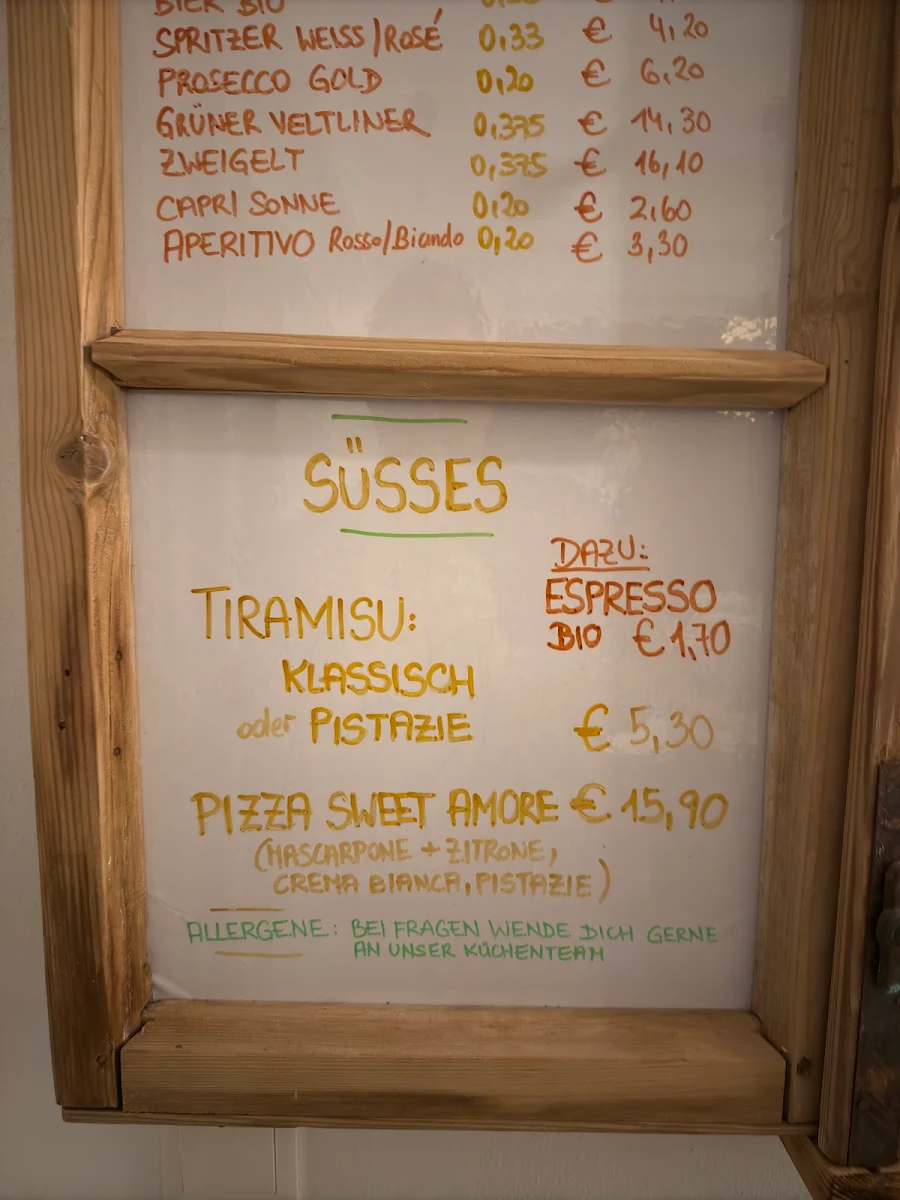 BIER BIO
SPRITZER WEISS/ROSÉ 0,33 € 4,20
PROSECCO GOLD 0,20 € 6,20
GRÜNER VELTLINER 0,375 € 14,30
ZWEIGELT 0,375 € 16,10
CAPRI SONNE 0,20 € 2,60
APERITIVO Rosso/Biando 0,20 € 3,30
SÜSSES
DAZU:
ESPRESSO
BIO € 1,70
TIRAMISU:
KLASSISCH
oder PISTAZIE € 5,30
PIZZA SWEET AMORE € 15,90
(MASCARPONE + ZITRONE,
CREMA BIANCA, PISTAZIE)
ALLERGENE: BEI FRAGEN WENDE DICH GERNE
AN UNSER KÜCHENTEAM